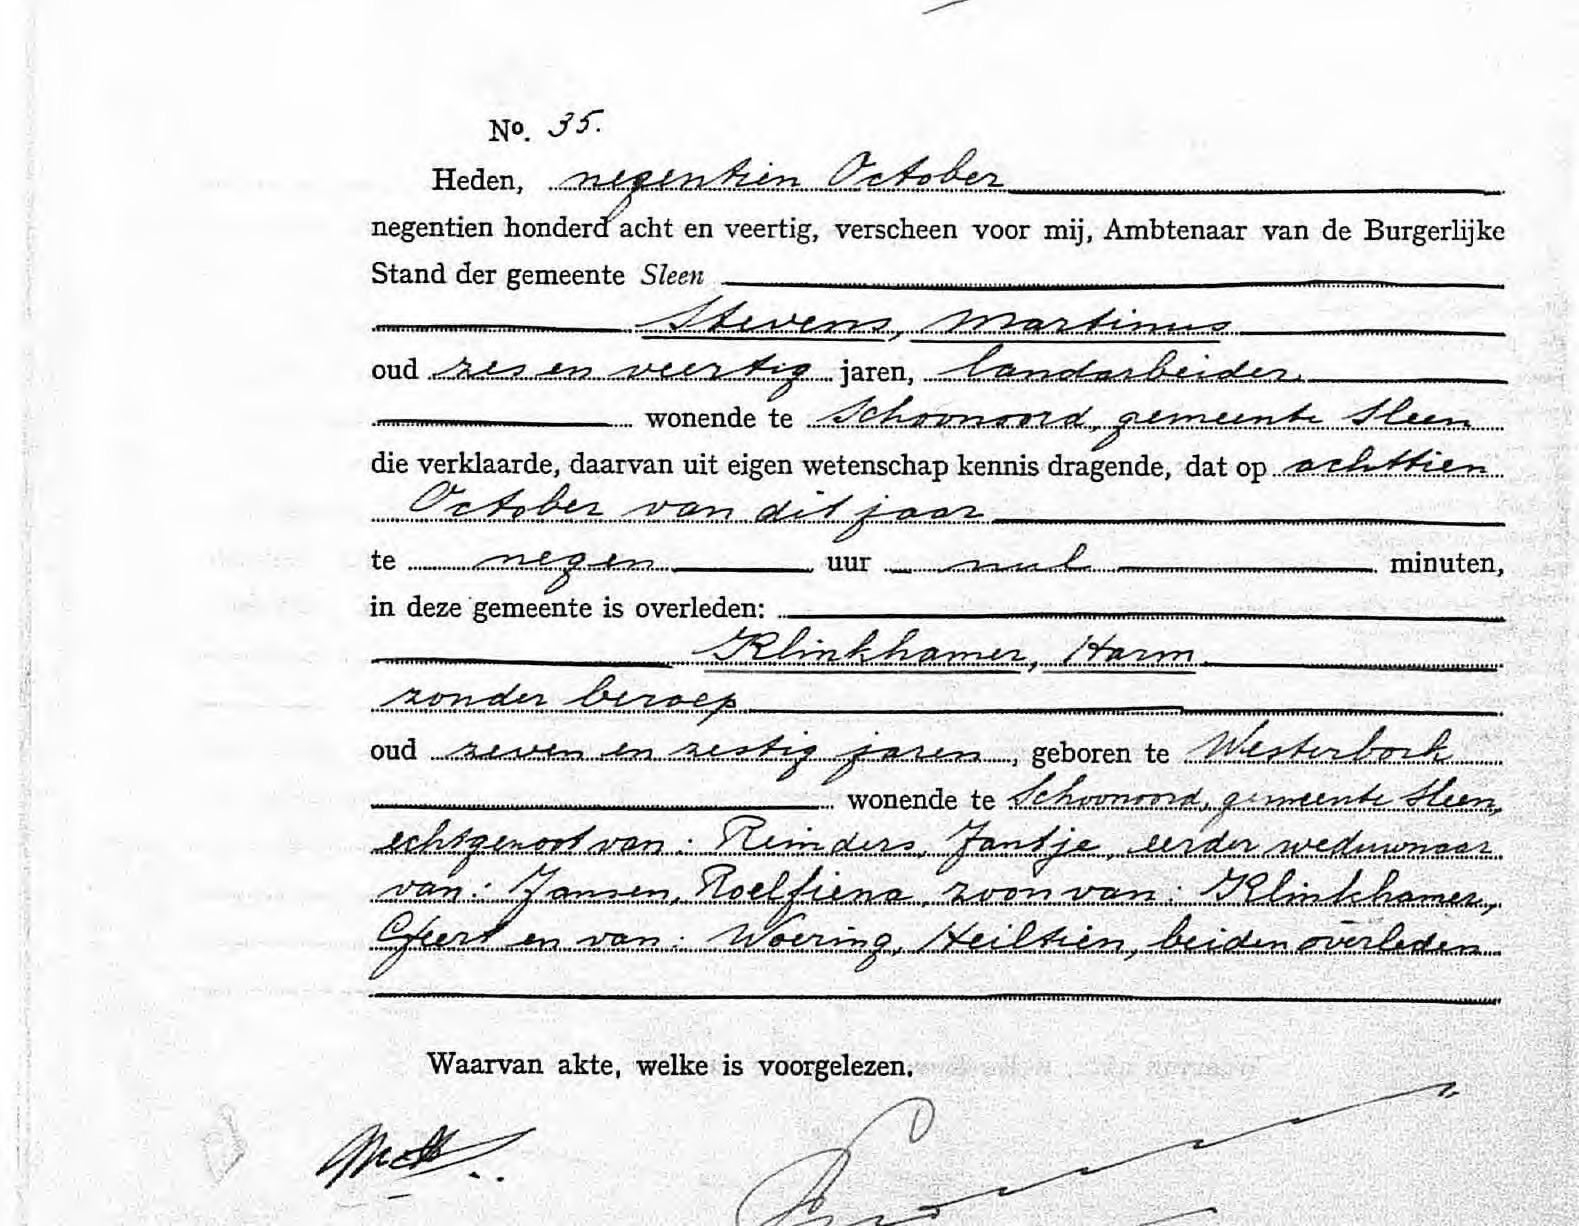 No. 35.
Heden, negentien October
negentien honderd acht en veertig, verscheen voor mij, Ambtenaar van de Burgerlijke
Stand der gemeente Sleen
Stevens, Martinus
oud zes en veertig jaren, landarbeider
wonende te Schoonoord, gemeente Sleen
die verklaarde, daarvan uit eigen wetenschap kennis dragende, dat op achttien
October van dit jaar
te negen uur nul minuten,
in deze gemeente is overleden:
Klinkhamer, Harm
zonder beroep
oud zeven en zestig jaren, geboren te Westerbork
wonende te Schoonoord, gemeente Sleen,
echtgenoot van: Reinders, Jantje, eerder weduwnaar
van: Jansen, Roelfiena, zoon van: Klinkhamer,
Geert en van: Woering, Heiltien, beiden overleden
Waarvan akte, welke is voorgelezen.